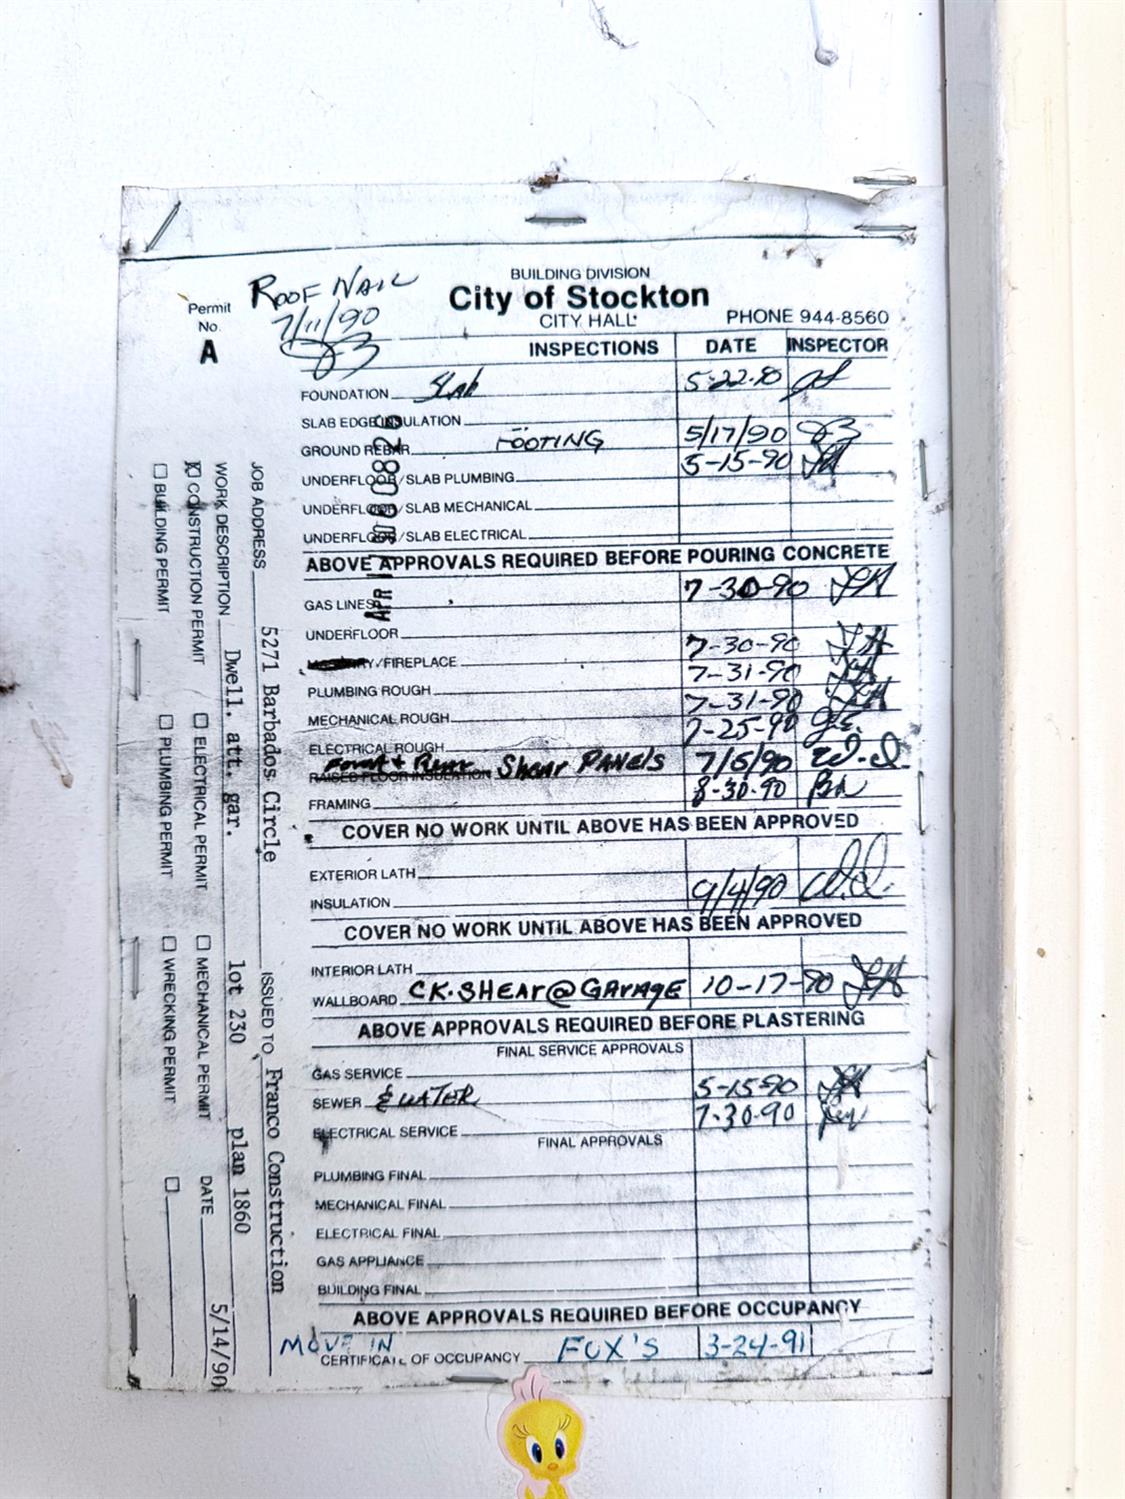 BUILDING DIVISION
ROOF NAIL
City of Stockton
Permit
No.
A
7/11/90
CITY HALL
PHONE 944-8560
INSPECTIONS DATE INSPECTOR
FOUNDATION Slab 5-22-90
SLAB EDGE INSULATION
GROUND REBAR FOOTING 5/17/90
5-15-90
UNDERFLOOR/SLAB PLUMBING
UNDERFLOOR/SLAB MECHANICAL
UNDERFLOOR/SLAB ELECTRICAL
ABOVE APPROVALS REQUIRED BEFORE POURING CONCRETE
GAS LINES 7-30-90
UNDERFLOOR
7-30-90
/FIREPLACE
7-31-90
PLUMBING ROUGH
7-31-90
MECHANICAL ROUGH
7-25-90
ELECTRICAL ROUGH
Front & Rear Shear PANELS 7/5/90
RAISED FLOOR INSULATION
8-30-90
FRAMING
COVER NO WORK UNTIL ABOVE HAS BEEN APPROVED
EXTERIOR LATH
INSULATION 9/4/90
COVER NO WORK UNTIL ABOVE HAS BEEN APPROVED
INTERIOR LATH
WALLBOARD CK. SHEAR @ GARAGE 10-17-90
ABOVE APPROVALS REQUIRED BEFORE PLASTERING
FINAL SERVICE APPROVALS
GAS SERVICE
SEWER & WATER 5-15-90
7-30-90
ELECTRICAL SERVICE
FINAL APPROVALS
PLUMBING FINAL
MECHANICAL FINAL
ELECTRICAL FINAL
GAS APPLIANCE
BUILDING FINAL
ABOVE APPROVALS REQUIRED BEFORE OCCUPANCY
MOVE IN
CERTIFICATE OF OCCUPANCY FOX'S 3-24-91
JOB ADDRESS 5271 Barbados Circle ISSUED TO Franco Construction
WORK DESCRIPTION Dwell. att. gar. lot 230 plan 1860
CONSTRUCTION PERMIT ELECTRICAL PERMIT MECHANICAL PERMIT DATE 5/14/90
BUILDING PERMIT PLUMBING PERMIT WRECKING PERMIT